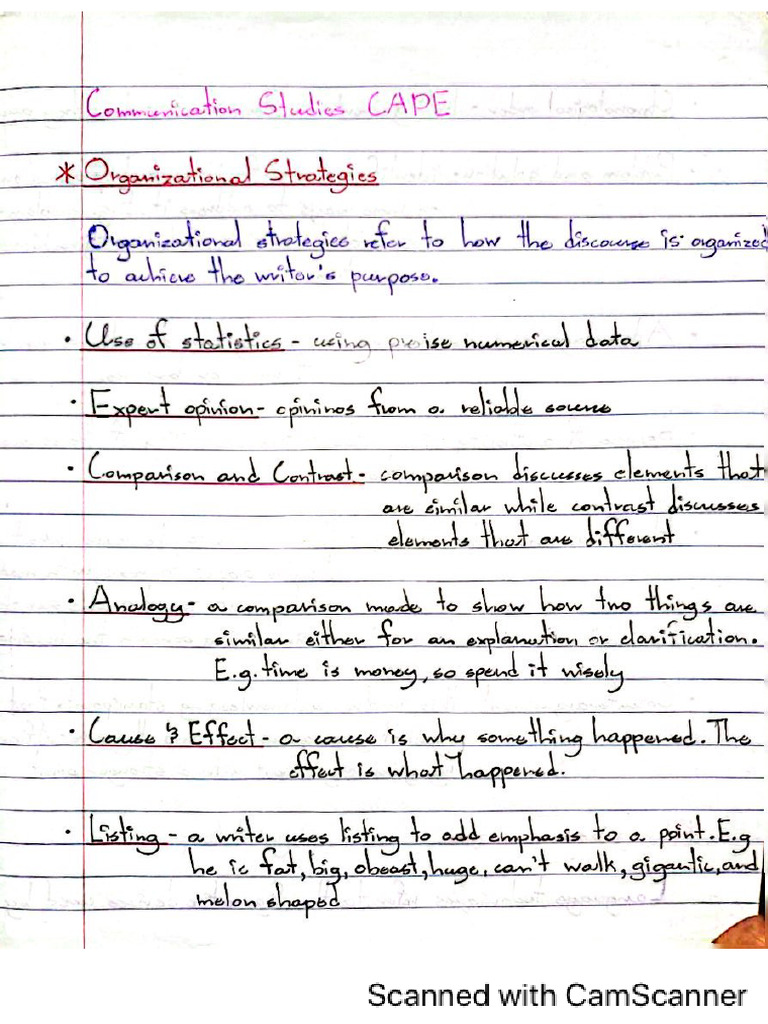 Communication Studies CAPE
* Organizational Strategies
Organizational strategies refer to how the discourse is organized
to achieve the writer's purpose.
• Use of statistics - using precise numerical data
• Expert opinion - opininos from a reliable source
• Comparison and Contrast - comparison discusses elements that
are similar while contrast discusses
elements that are different
• Analogy - a comparison made to show how two things are
similar either for an explanation or clarification.
E.g. time is money, so spend it wisely
• Cause & Effect - a cause is why something happened. The
effect is what happened.
• Listing - a writer uses listing to add emphasis to a point. E.g
he is fat, big, obeast, huge, can't walk, gigantic, and
melon shaped
Scanned with CamScanner